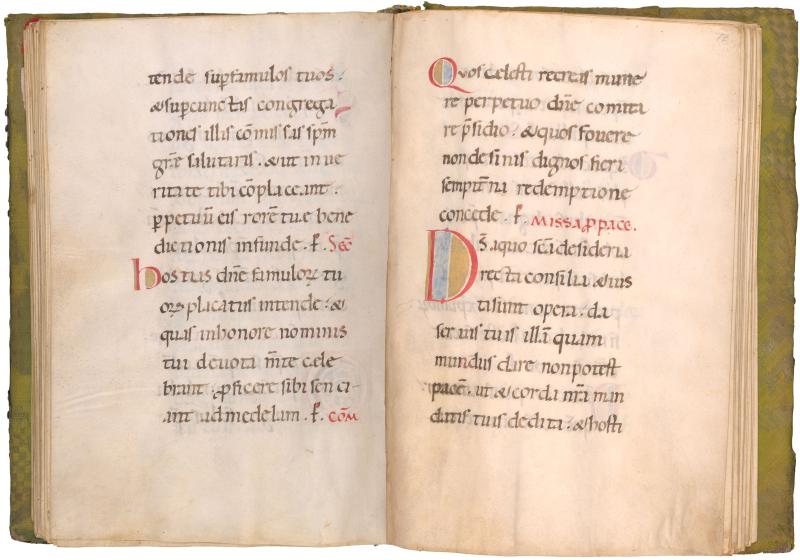 tende sup famulos tuos .
& sup cunctis congrega
tiones illis cōmissas spm̄
grāe salutaris . & ut in ue
ritate tibi cōplaceant .
ꝑpetuū eis rorē tue bene
dictionis infunde . ꝑ. Sec̄
hostias dn̄e famuloꝝ tu
oꝝ placatus intende . &
quas in honore nominis
tui deuota m̄te cele
brant . ꝓficere sibi senci
ant ad medelam . ꝑ. cōm
78
Quos celesti recreas mune
re perpetuo dn̄e comita
re p̄sidio . & quos fouere
non desinis dignos fieri
sempit̄na redemptione
concede . ꝑ. MISSA ꝓ PACE.
Ds̄ a quo sc̄a desideria
recta consilia & ius
ta sunt opera . da
seruis tuis illā quam
mundus dare non potest
pacē . ut & corda nr̄a man
datis tuis dedita . & hosti